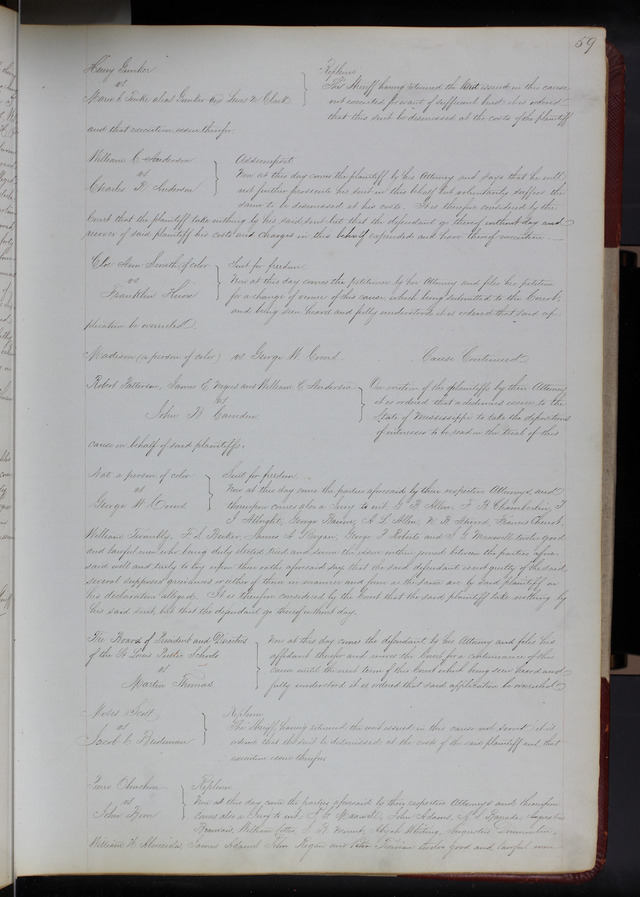 59
Henry Gunker
vs
Replevin
The Sheriff having returned the Writ issued in this cause
not executed for want of sufficient bond it is ordered
that this suit be dismissed at the costs of the plaintiff
and that execution issue therefor.
William C Anderson
vs
Charles D Anderson
Assumpsit
Now at this day comes the plaintiff by his Attorney and says that he will
not further prosecute his suit in this behalf but voluntarily suffers the
same to be dismissed at his costs. It is therefore considered by the
Court that the plaintiff take nothing by his said suit but that the defendant go thereof without day and
recover of said plaintiff his costs and charges in this behalf expended and have thereof execution
Ann Smith of color
vs
Franklin Knox
Suit for freedom
Now at this day comes the petitioner by her Attorney and files her petition
for a change of venue of this cause, which being submitted to the Court,
and being seen heard and fully understood it is ordered that said ap-
plication be overruled.
Madison (a person of color) vs George W. Coons Cause Continued
Robert Patterson, James E and William C Anderson
vs
John B Camden
On motion of the plaintiffs by their Attorney
it is ordered that a dedimus issue to the
State of Mississippi to take the depositions
of witnesses to be read in the trial of this
cause on behalf of said plaintiffs.
Nat a person of color
vs
George W Coons
Suit for freedom
Now at this day come the parties aforesaid by their respective Attorneys, and
thereupon comes also a Jury to wit, G B Allen, F B Chamberlin, T
J Albright, George Barnes, A L Allen, Francis Church,
William Trumbly, F L Becker, James A Bryan, George P Roberts and J G Maxwell twelve good
and lawful men who being duly elected tried and sworn the issue within joined between the parties afore-
said well and truly to try upon their oaths aforesaid say that the said defendant is not guilty of the said
several supposed grievances or either of them in manner and form as the same are by said plaintiff in
his declaration alleged. It is therefore considered by the Court that the said plaintiff take nothing by
his said suit, but that the defendant go thereof without day.
The Board of President and Directors
of the St Louis Public Schools
vs
Martin Thomas
Now at this day comes the defendant by his Attorney and files his
affidavit therefor and moves the Court for a continuance of this
cause until the next term of this Court which being seen heard and
fully understood it is ordered that said application be overruled
Moses Scott
vs
Jacob C Biedeman
Replevin
The Sheriff having returned the writ issued in this cause not served it is
ordered that this suit be dismissed at the costs of the said plaintiff and that
execution issue therefor
Pierre Chouteau
vs
John
Replevin
Now at this day come the parties aforesaid by their respective Attorneys and thereupon
comes also a Jury to wit, J G Maxwell, John Adams, Augustus
William S B Augustus
William H Almeida, James Adams John Rogan and twelve good and lawful men